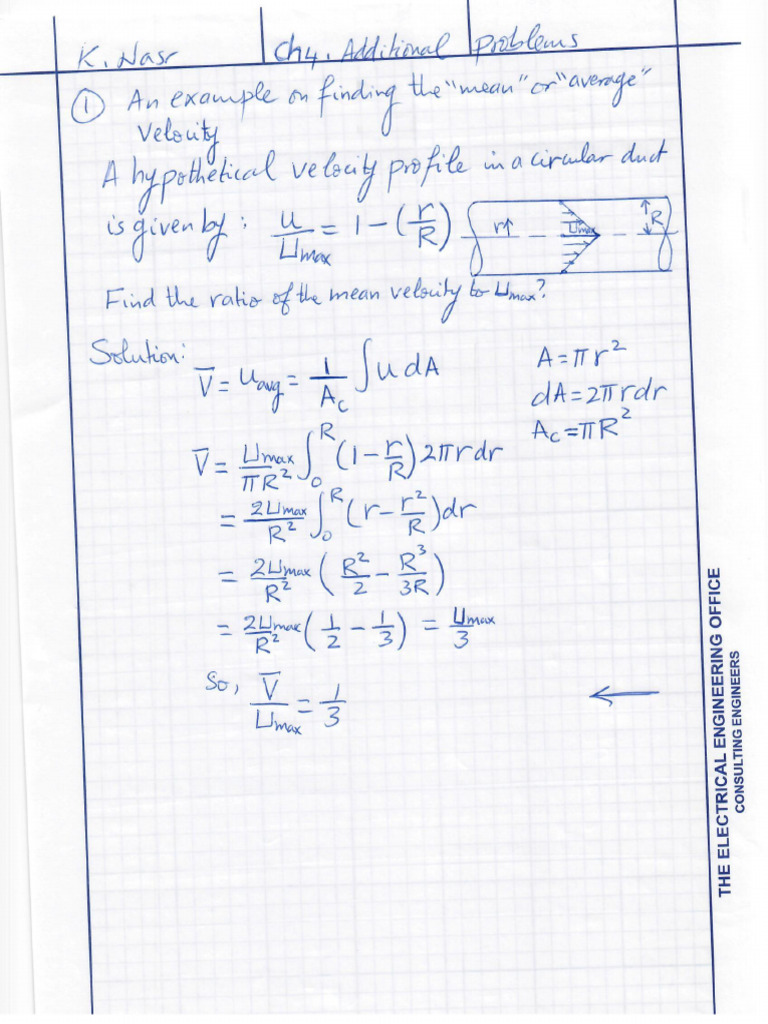 K. Nasr Ch4. Additional Problems
① An example on finding the "mean" or "average"
Velocity
A hypothetical velocity profile in a circular duct
is given by: u/Umax = 1 - (r/R)
r↑ Umax ↑R
Find the ratio of the mean velocity to Umax?
Solution:
V̅ = uavg = 1/Ac ∫ u dA
A = πr²
dA = 2πrdr
Ac = πR²
V̅ = Umax/πR² ∫₀ᴿ (1 - r/R) 2πrdr
= 2Umax/R² ∫₀ᴿ (r - r²/R) dr
= 2Umax/R² (R²/2 - R³/3R)
= 2Umax/R² (1/2 - 1/3) = Umax/3
So, V̅/Umax = 1/3 ←
THE ELECTRICAL ENGINEERING OFFICE
CONSULTING ENGINEERS